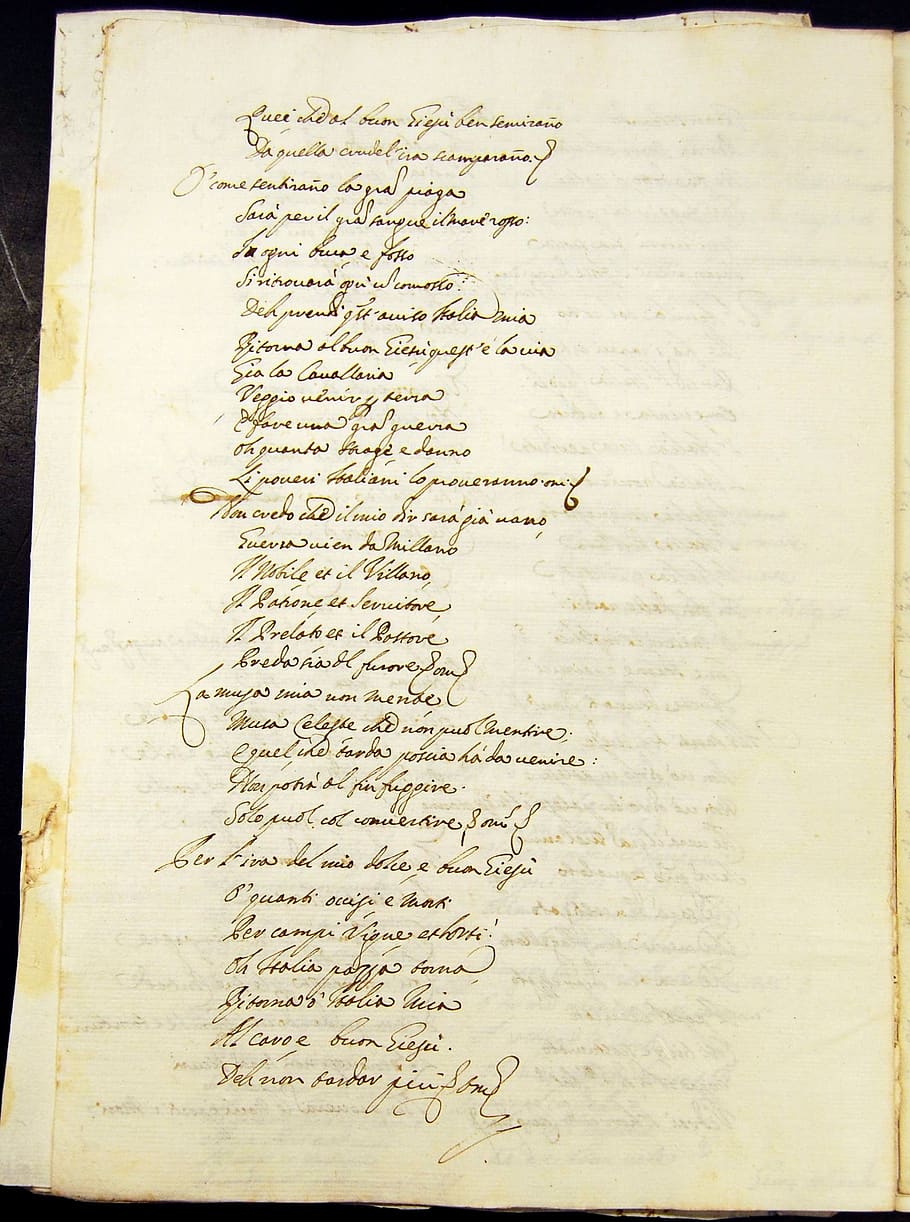 Quei chè al buon Giesù ben serviraño
Da quella crudel'ira scamparaño.
O' come sentiraño la gra piaga
Sarà per il gra sangue il mare rosso:
In ogni buca e fosso
Si ritrovarà
Deh prendi qst'aviso Italia mia
Ritorna al buon Giesù quest'è la via
Già la Cavallaria
Veggio venir p terra
E fare una gra guerra
Oh quanta strage e danno
Li poveri Italiani lo proveranno. om:
Non credo chè il mio dir sarà già vano
Guerra vien da Millano
Il Nobile et il Villano,
Il Patrone et Servitore,
Il Prelato et il Pastore
Preda sia dl furore om
La musa mia non mente
Musa Celeste chè nòn puol mentire;
E quel chè tarda poscia hà da venire:
Non potrà al fin fuggire.
Solo puol col convertire, om
Per l'ira del mio dolce e buon Giesù
O' quanti occisi e Morti
Per campi Vigne et horti:
Oh Italia pazza torna
Ritorna ò Italia Mia
Al caro e buon Giesù.
Deh nòn tardar più om